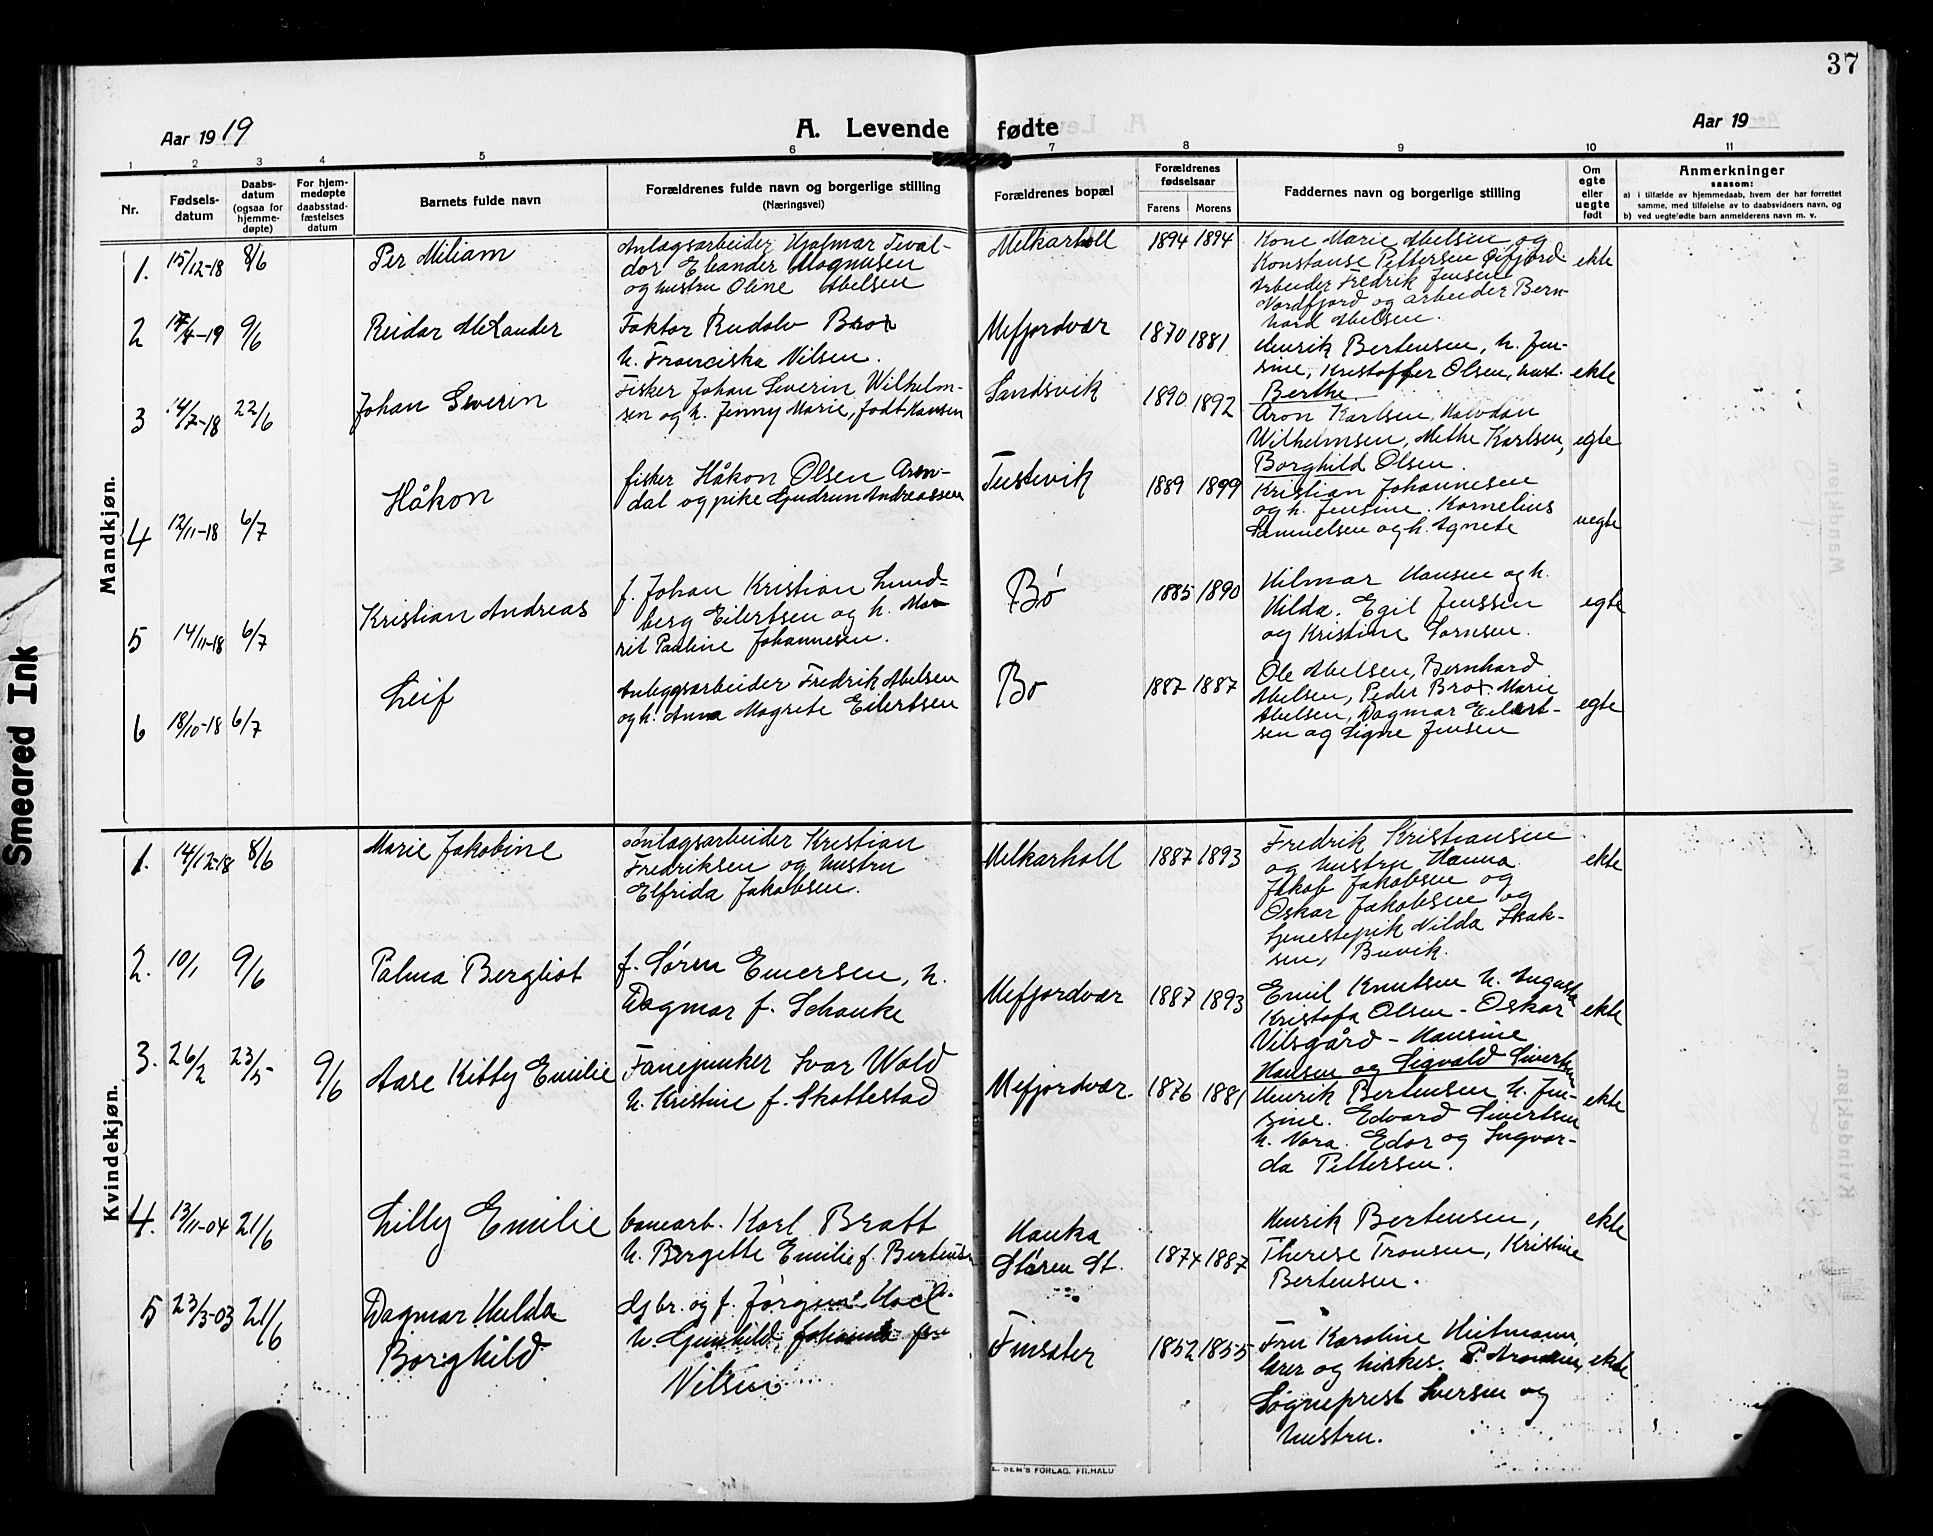 37
Aar 1919
A. Levende fødte
Aar 19
1 2 3 4 5 6 7 8 9 10 11
Nr.
Fødsels-
datum
Daabs-
datum
(ogsaa for
hjemme-
døpte)
For hjem-
medøpte
daabsstad-
fæstelses
datum
Barnets fulde navn
Forældrenes fulde navn og borgerlige stilling
(Næringsvei)
Forældrenes bopæl
Forældrenes
fødselsaar
Farens
Morens
Faddernes navn og borgerlige stilling
Om
egte
eller
uegte
født
Anmerkninger
saasom:
a) i tilfælde av hjemmedaab, hvem der har forrettet
samme, med tilføielse av to daabsvidners navn, og
b) ved uegte fødte barn anmelderens navn m. v.
Mandkjøn.
1. 15/12-18 8/6
Per Miliam
Anlægsarbeider Hjalmar Teval-
dor Eleander Magnusen
og hustru Oline Abelsen
Melkarholl
1894 1894
Kone Marie Abelsen og
Konstanse Pettersen Øifjord.
Arbeider Fredrik Jensen
Nordfjord og arbeider Bern-
hard Abelsen.
ekte
2 /4-19 9/6
Reidar Alexander
Faktor Rudolv Brox
h. Franciska Nilsen.
Mefjordvær
1870 1881
Henrik Bertensen, h. Jen-
sine, Kristoffer Olsen, hust.
Berthe
ekte
3 14/7-18 22/6
Johan Severin
Fisker Johan Severin Wilhelm-
sen og h. Jenny Marie, født Hansen
Sandsvik
1890 1892
Aron Karlsen, Halvdan
Wilhelmsen, Methe Karlsen,
Borghild Olsen.
egte
4 12/11-18 6/7
Håkon
fisker Håkon Olsen Aron-
dal og pike Gudrun Andreassen
Trestevik
1889 1899
Kristian Johannesen
og h. Jensine. Kornelius
Samuelsen og h. Agnete
uegte
5 14/11-18 6/7
Kristian Andreas
f. Johan Kristian Lund-
berg Eilertsen og h. Ma
rit Pauline Johannesen.
Bø
1885 1890
Hilmar Hansen og h.
Hilda. Egil Jenssen
og Kristine Sørnsen.
egte
6 18/10-18 6/7
Leif
Anleggsarbeider Fredrik Abelsen
og h. Anna Magrete Eilertsen
Bø
1887 1887
Ole Abelsen, Bernhard
Abelsen, Peder Brox. Marie
Abelsen, Dagmar Eilert-
sen og Signe Jensen
egte
Kvindekjøn.
1. 14/12-18 8/6
Marie Jakobine
Anlægsarbeider Kristian
Fredriksen og hustru
Elfrida Jakobsen.
Melkarholl
1887 1893
Fredrik Kristiansen
og hustru Hanna
Jakob Jakobsen og
Oskar Jakobsen og
tjenestepik Hilda Isak-
sen, Buvik.
ekte
2. 10/1 9/6
Palma Bergliot
f. Søren Emersen, h.
Dagmar f. Schanke
Mefjordvær
1887 1893
Emil Knutsen h. Augusta
Kristofa Olsen - Oskar
Vilsgård - Hansine
Hansen og Sigvald Sivertsen
ekte
3. 26/2 23/5 9/6
Aase Kitty Emilie
Fanejunker Ivar Wold
h. Kristine f. Skottestad
Mefjordvær.
1876 1881
Henrik Bertensen h. Jen-
sine. Edvard Sivertsen
h. Nora. Edor og Ingvar-
da Pettersen.
ekte
4. 13/11-04 21/6
Lilly Emilie
banearb. Karl Bratt
h. Bergette Emilie f. Bertensen
Hauka
Støren St.
1874 1887
Henrik Bertensen,
Therese Tronsen, Kristine
Bertensen.
ekte
5 23/3-03 21/6
Dagmar Hulda
Borghild
gbr. og f. Jørgen Hoel
h. Gunhild
Nilsen
Finsæter
1852 1855
Fru Karoline Heitmann,
lærer og kirkes. P. Aronsen,
Sogneprest Iversen og
hustru.
ekte
E. SEM'S FORLAG, FR.HALD
Smeared Ink